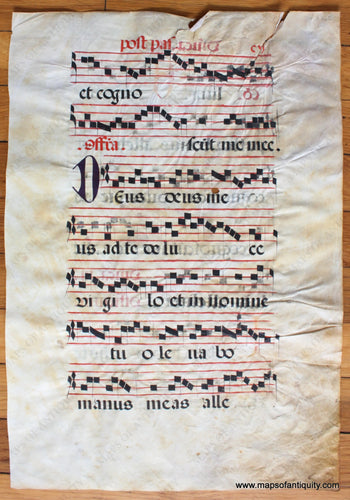 post pas
et cogno
Offra scūt me mee.
Deus deus me
us. ad te de lu ce
vi gi lo et in nomine
tu o le ua bo
manus meas alle
www.mapsofantiquity.com